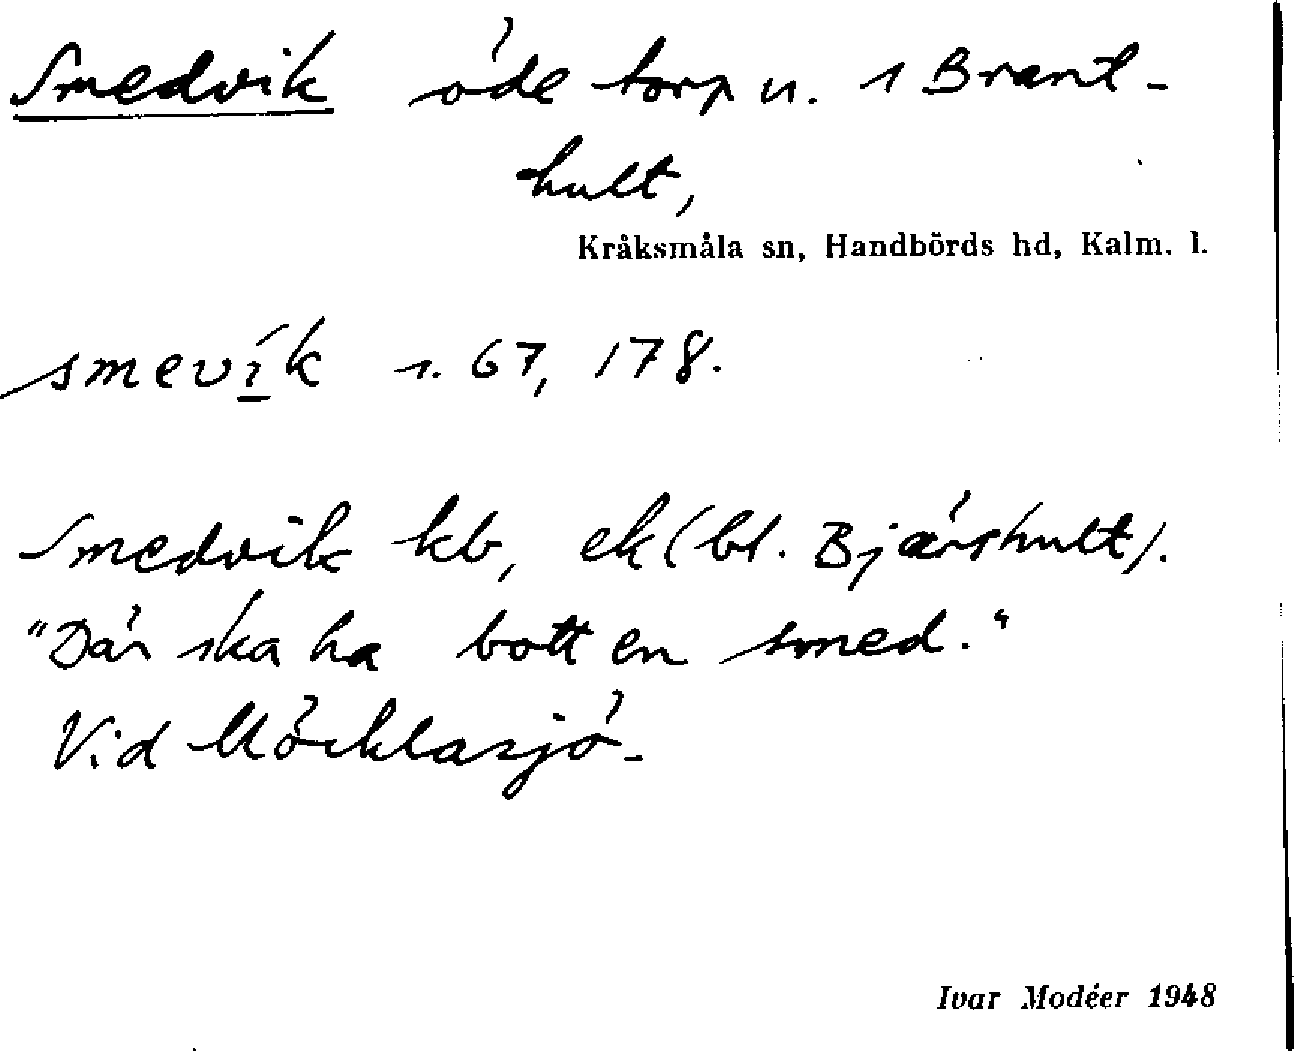 Smedvik öde torp u. s Brant-
hult,
Kråksmåla sn, Handbörds hd, Kalm. l.
smeví̲k s. 67, 178.
Smedvik kb, ek (bl. Bjärshult).
"Där ska ha bott en smed."
Vid Möcklasjö.
Ivar Modéer 1948